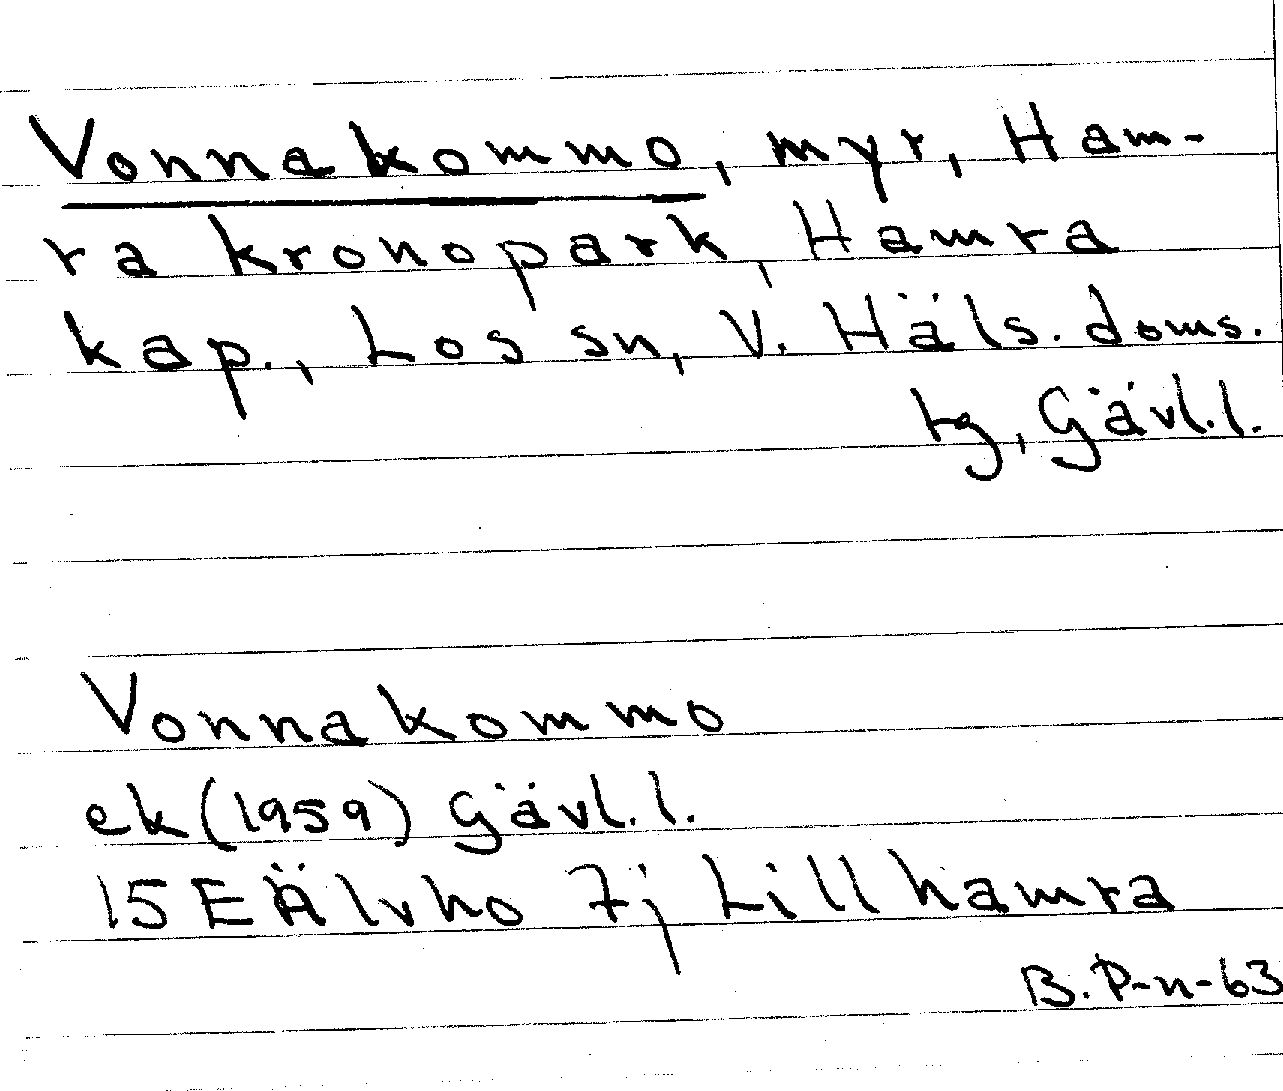 Vonnakommo, myr, Ham-
ra kronopark, Hamra
kap., Los sn, V. Häls. doms.
tg, Gävl.l.
Vonnakommo
ek (1959) Gävl.l.
15E Älvho 7j Lillhamra
B.P-n-63